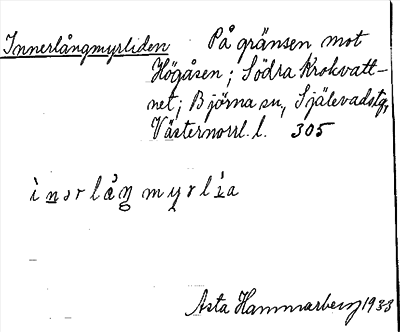 Innerlångmyrliden På gränsen mot
Högåsen; Södra Krokvatt-
net; Björna sn, Själevadstg,
Västernorrl. l. 305
ìnərlåŋmyrlia
Asta Hammarberg 1933